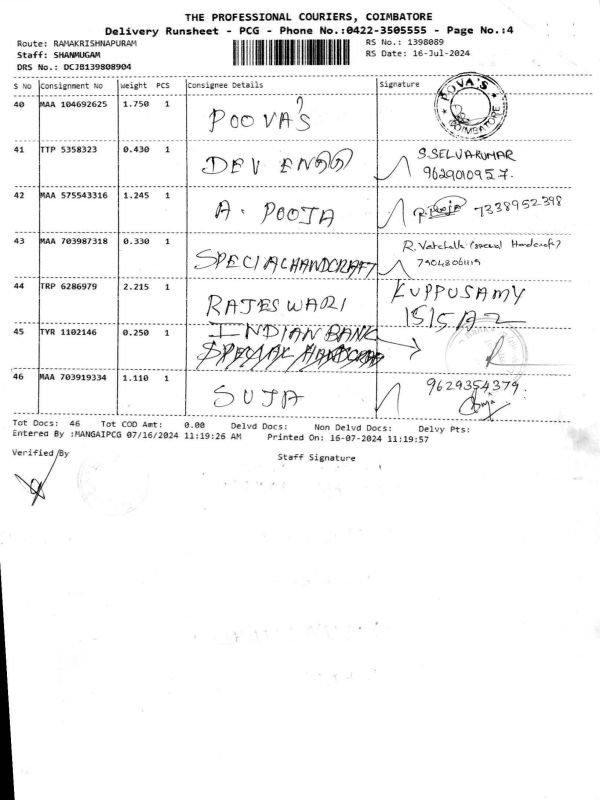 THE PROFESSIONAL COURIERS, COIMBATORE
Delivery Runsheet - PCG - Phone No.:0422-3505555 - Page No.:4
Route: RAMAKRISHNAPURAM RS No.: 1398089
Staff: SHANMUGAM RS Date: 16-Jul-2024
DRS No.: DCJB139808904
S No Consignment No Weight PCS Consignee Details Signature
40 MAA 104692625 1.750 1 POOVA'S POVA'S COIMBATORE
41 TTP 5358323 0.430 1 DEV ENGG S.SELVAKUMAR
9629010957.
42 MAA 575543316 1.245 1 A. POOJA R. Pooja 7338952398
43 MAA 703987318 0.330 1 SPECIALHANDCRAFT R. (special Handcraft)
44 TRP 6286979 2.215 1 RAJESWARI KUPPUSAMY
45 TYR 1102146 0.250 1 INDIAN BANK
46 MAA 703919334 1.110 1 SUJA 9629354379.
Suja
Tot Docs: 46 Tot COD Amt: 0.00 Delvd Docs: Non Delvd Docs: Delvy Pts:
Entered By :MANGAIPCG 07/16/2024 11:19:26 AM Printed On: 16-07-2024 11:19:57
Verified By Staff Signature